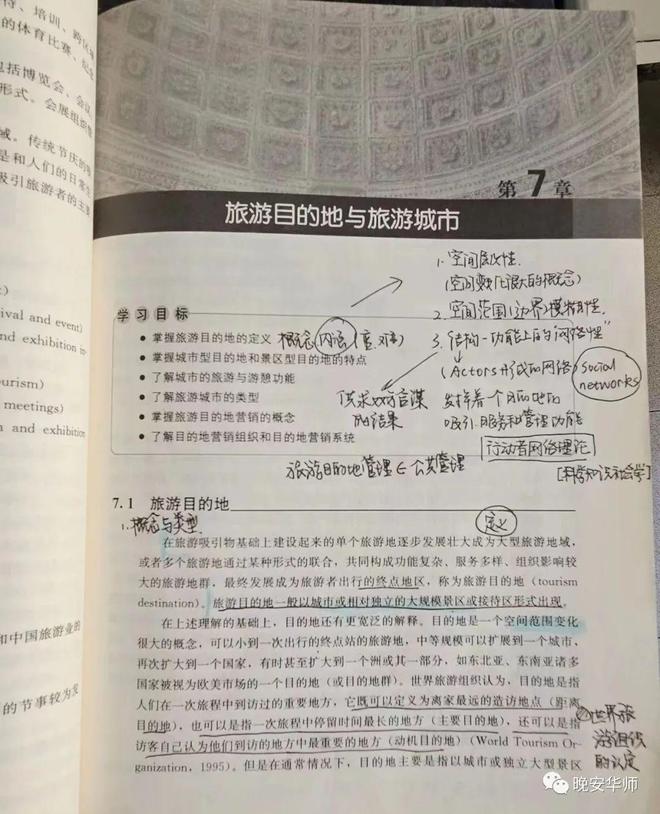 第7章
旅游目的地与旅游城市
学习目标
掌握旅游目的地的定义
掌握城市型目的地和景区型目的地的特点
了解城市的旅游与游憩功能
了解旅游城市的类型
掌握旅游目的地营销的概念
了解目的地营销组织和目的地营销系统
概念 内涵(重、难)
1. 空间层次性.
(空间变化很大的概念)
2. 空间范围(边界)模糊性.
3. 结构-功能上的"网络性"
(Actors形成的网络)
social
networks
供求双方合谋
的结果
发挥着一个目的地的
吸引.服务和管理功能
行动者网络理论
[科学知识社会学]
旅游目的地管理∈公共管理
7.1 旅游目的地
1.概念与类型.
定义
在旅游吸引物基础上建设起来的单个旅游地逐步发展壮大成为大型旅游地域，
或者多个旅游地通过某种形式的联合，共同构成功能复杂、服务多样、组织影响较
大的旅游地群，最终发展成为旅游者出行的终点地区，称为旅游目的地（tourism
destination）。旅游目的地一般以城市或相对独立的大规模景区或接待区形式出现。
在上述理解的基础上，目的地还有更宽泛的解释。目的地是一个空间范围变化
很大的概念，可以小到一次出行的终点站的旅游地，中等规模可以扩展到一个城市，
再次扩大到一个国家，有时甚至扩大到一个洲或其一部分，如东北亚、东南亚诸多
国家被视为欧美市场的一个目的地（或目的地群）。世界旅游组织认为，目的地是指
人们在一次旅程中到访过的重要地方，它既可以定义为离家最远的造访地点（距离
目的地），也可以是指一次旅程中停留时间最长的地方（主要目的地），还可以是指
访客自己认为他们到访的地方中最重要的地方（动机目的地）（World Tourism Or-
ganization，1995）。但是在通常情况下，目的地主要是指以城市或独立大型景区
世界旅
游组织
的认定
待、培训、
的体育比赛、
包括博览会、会议
形式。会展组
域。传统节庆的
是和人们的日常
吸引旅游者的主要
ival and event)
nd exhibition in-
urism)
meetings)
n and exhibition
和中国旅游业的
的节事较为发
晚安华师